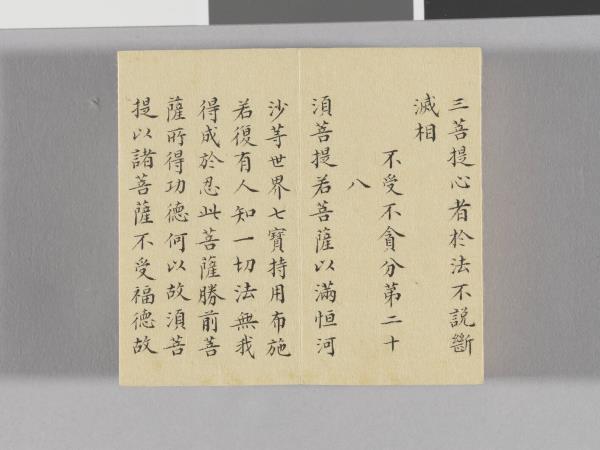 三菩提心者於法不説斷
滅相
不受不貪分第二十
八
須菩提若菩薩以滿恒河
沙等世界七寶持用布施
若復有人知一切法無我
得成於忍此菩薩勝前菩
薩所得功德何以故須菩
提以諸菩薩不受福德故